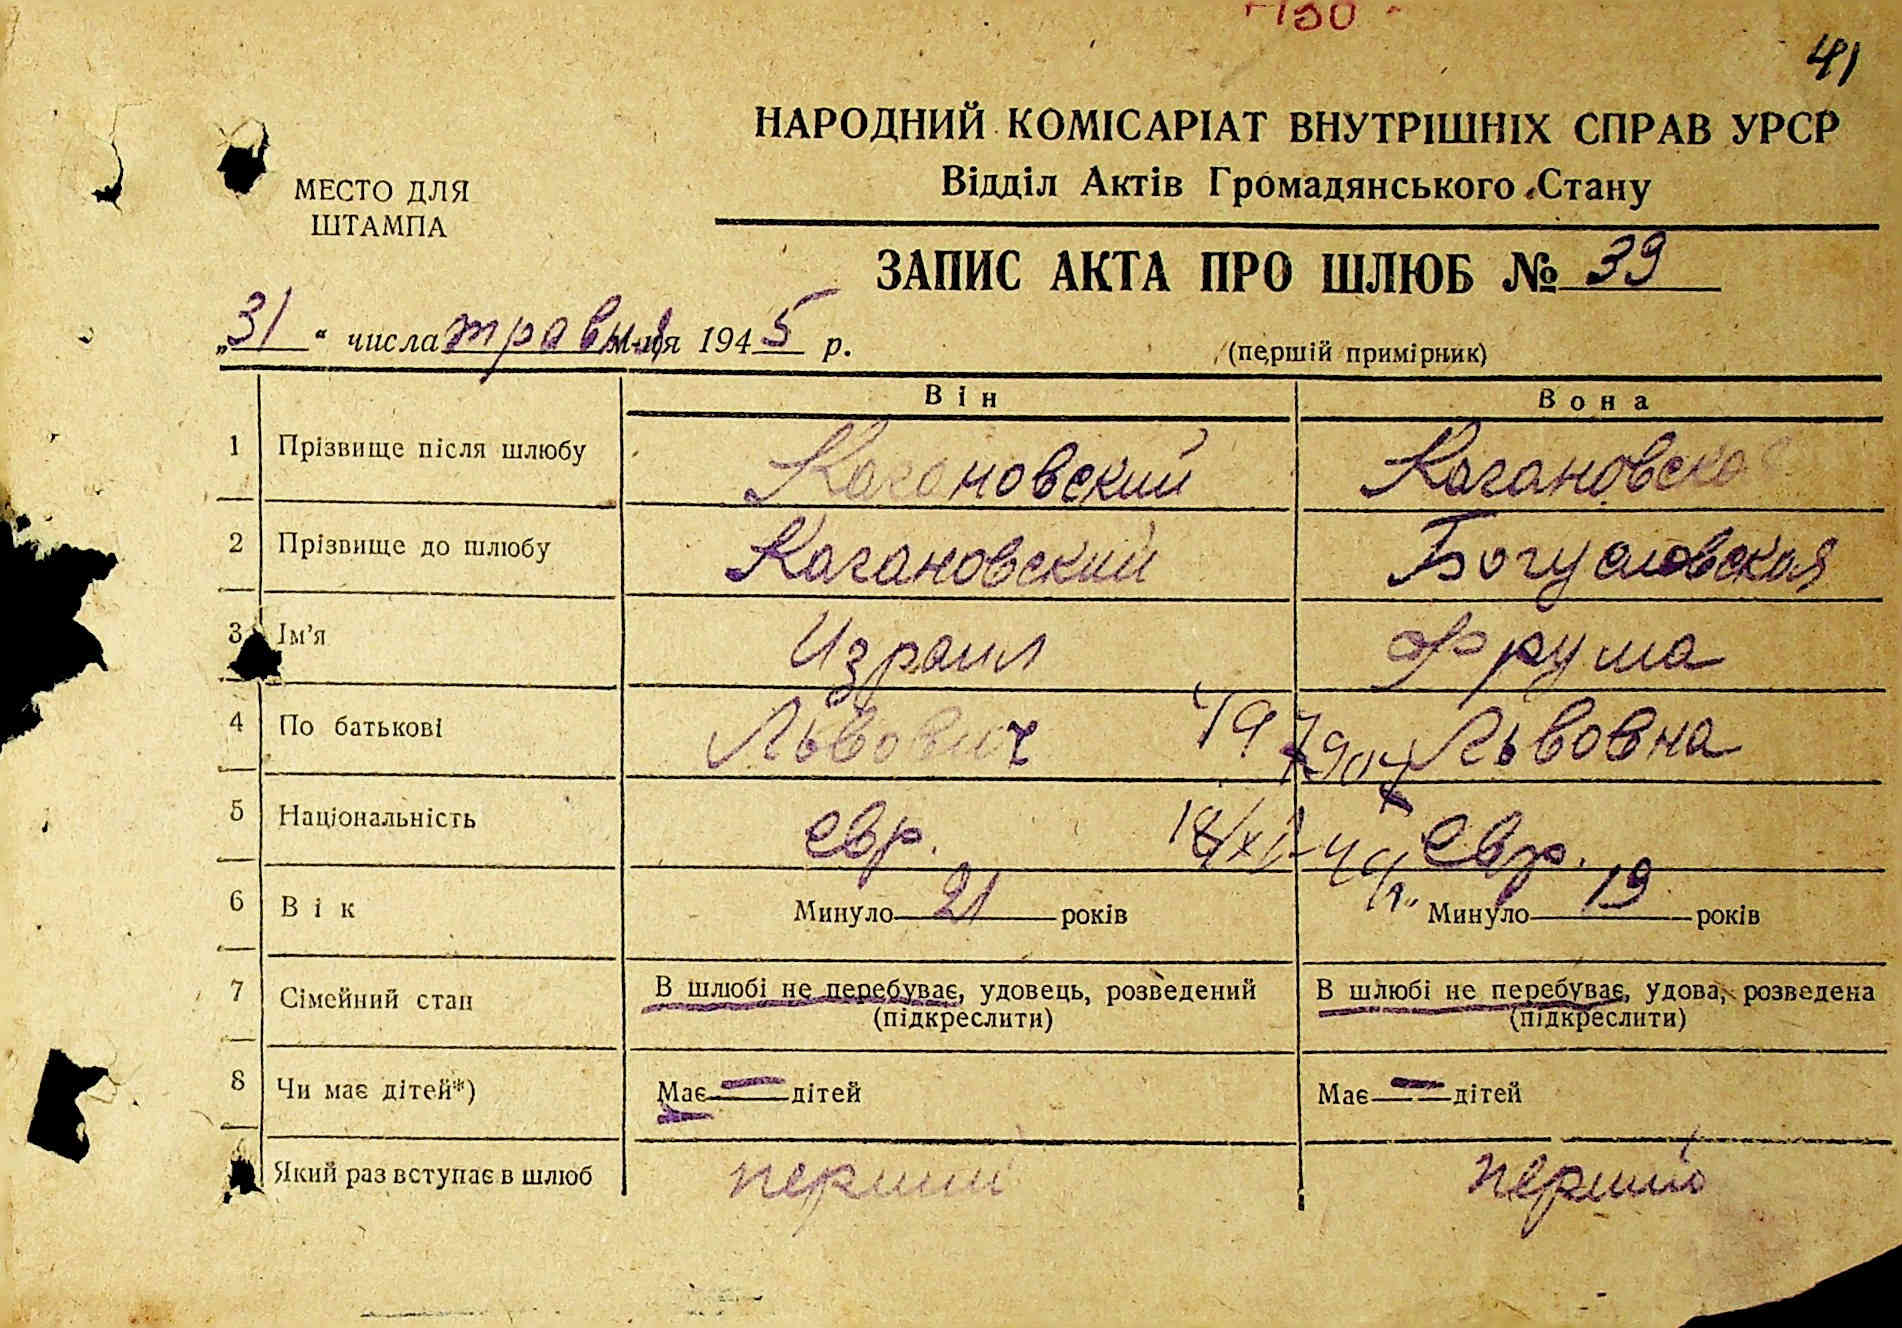 130
41
НАРОДНИЙ КОМІСАРІАТ ВНУТРІШНІХ СПРАВ УРСР
Відділ Актів Громадянського Стану
МЕСТО ДЛЯ
ШТАМПА
ЗАПИС АКТА ПРО ШЛЮБ № 39
„31“ числа травня м-ця 1945 р.
(першій примірник)
Він Вона
1 Прізвище після шлюбу Кагановский Кагановская
2 Прізвище до шлюбу Кагановский Богуславская
3 Ім’я Израил Фрума
4 По батькові Львович Львовна
5 Національність евр. евр.
6 Вік Минуло 21 років Минуло 19 років
7 Сімейний стан В шлюбі не перебуває, удовець, розведений В шлюбі не перебуває, удова, розведена
(підкреслити) (підкреслити)
8 Чи має дітей*) Має — дітей Має — дітей
Який раз вступає в шлюб перший перший